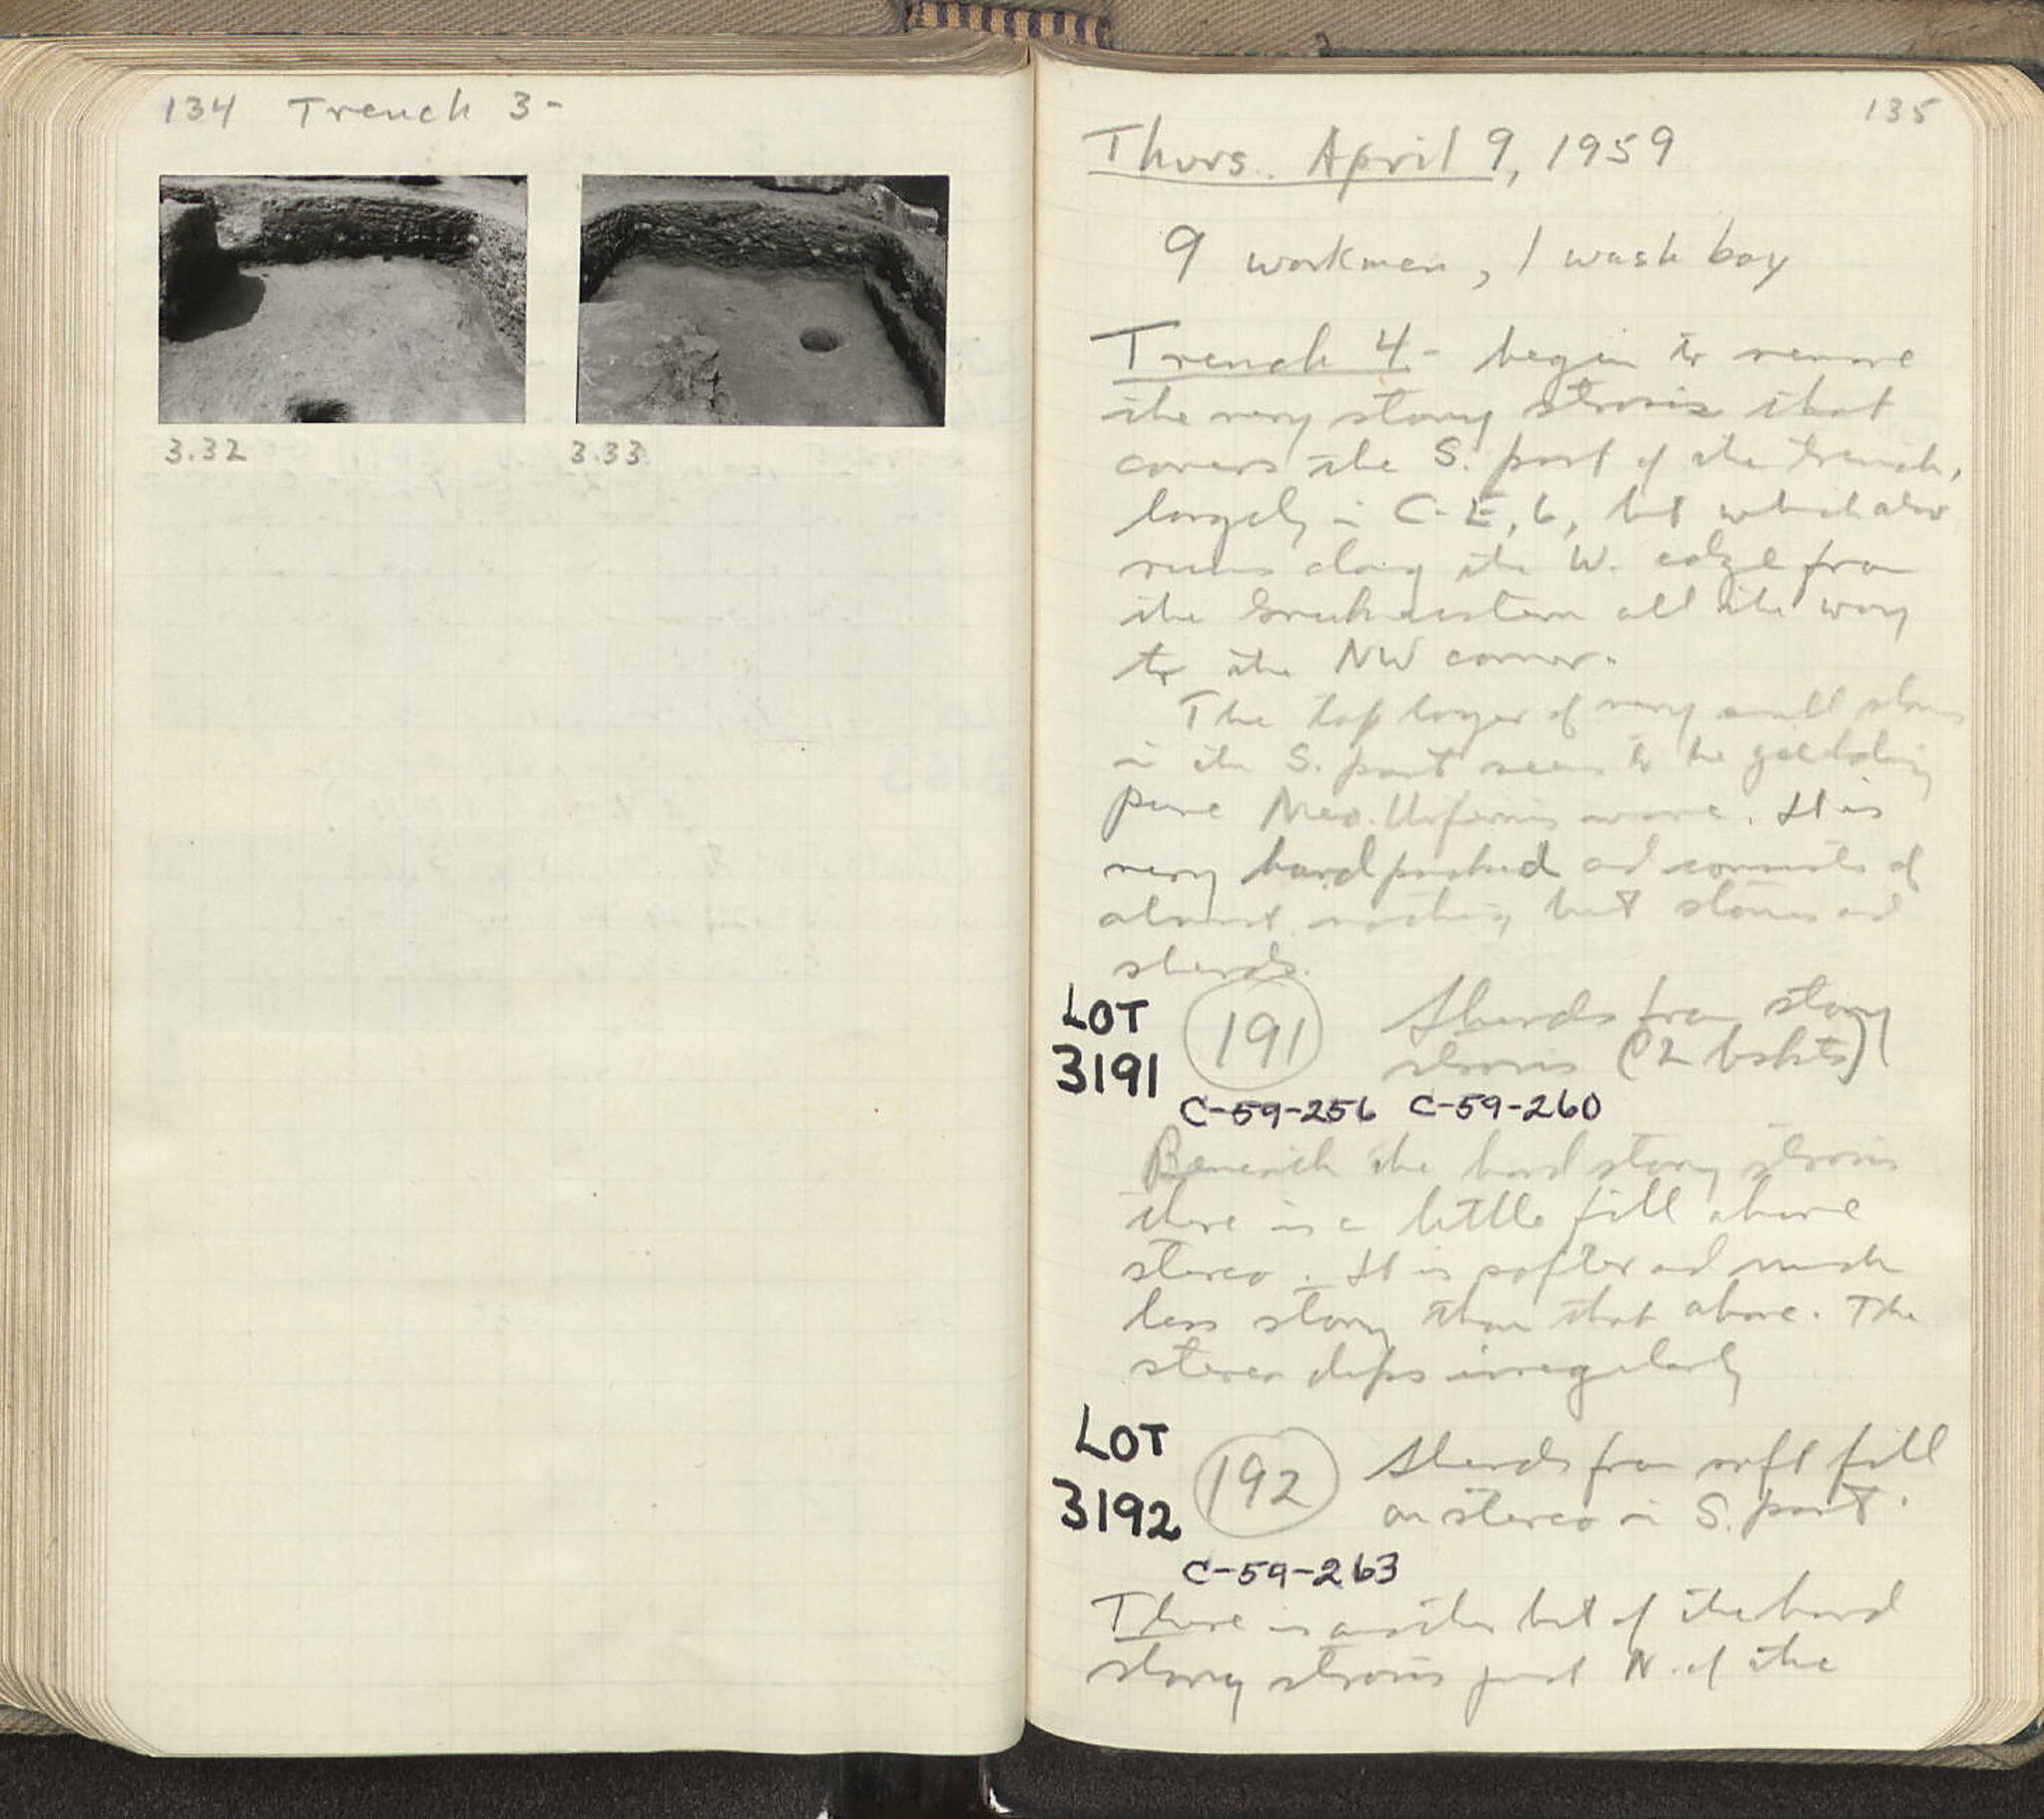 134 Trench 3-
3.32
3.33
135
Thurs. April 9, 1959
9 workmen, 1 wash boy
Trench 4 - begin to remove
the very stony strosis that
covers the S. part of the trench,
largely in C-E, 6, but which also
runs along the W. edge from
the all the way
to the NW corner.
The top layer of very small stones
in the S. part seems to be yielding
pure Neo. Urfirnis ware. It is
very hard packed and consists of
almost nothing but stones and
sherds.
LOT
3191
191
Sherds from stony
strosis (2 bskts)
C-59-256 C-59-260
Beneath the hard stony strosis
there is a little fill above
stereo. It is softer and much
less stony than that above. The
stereo dips irregularly
LOT
3192
192
Sherds from soft fill
on stereo in S. part.
C-59-263
There is another bit of the hard
stony strosis just N. of the